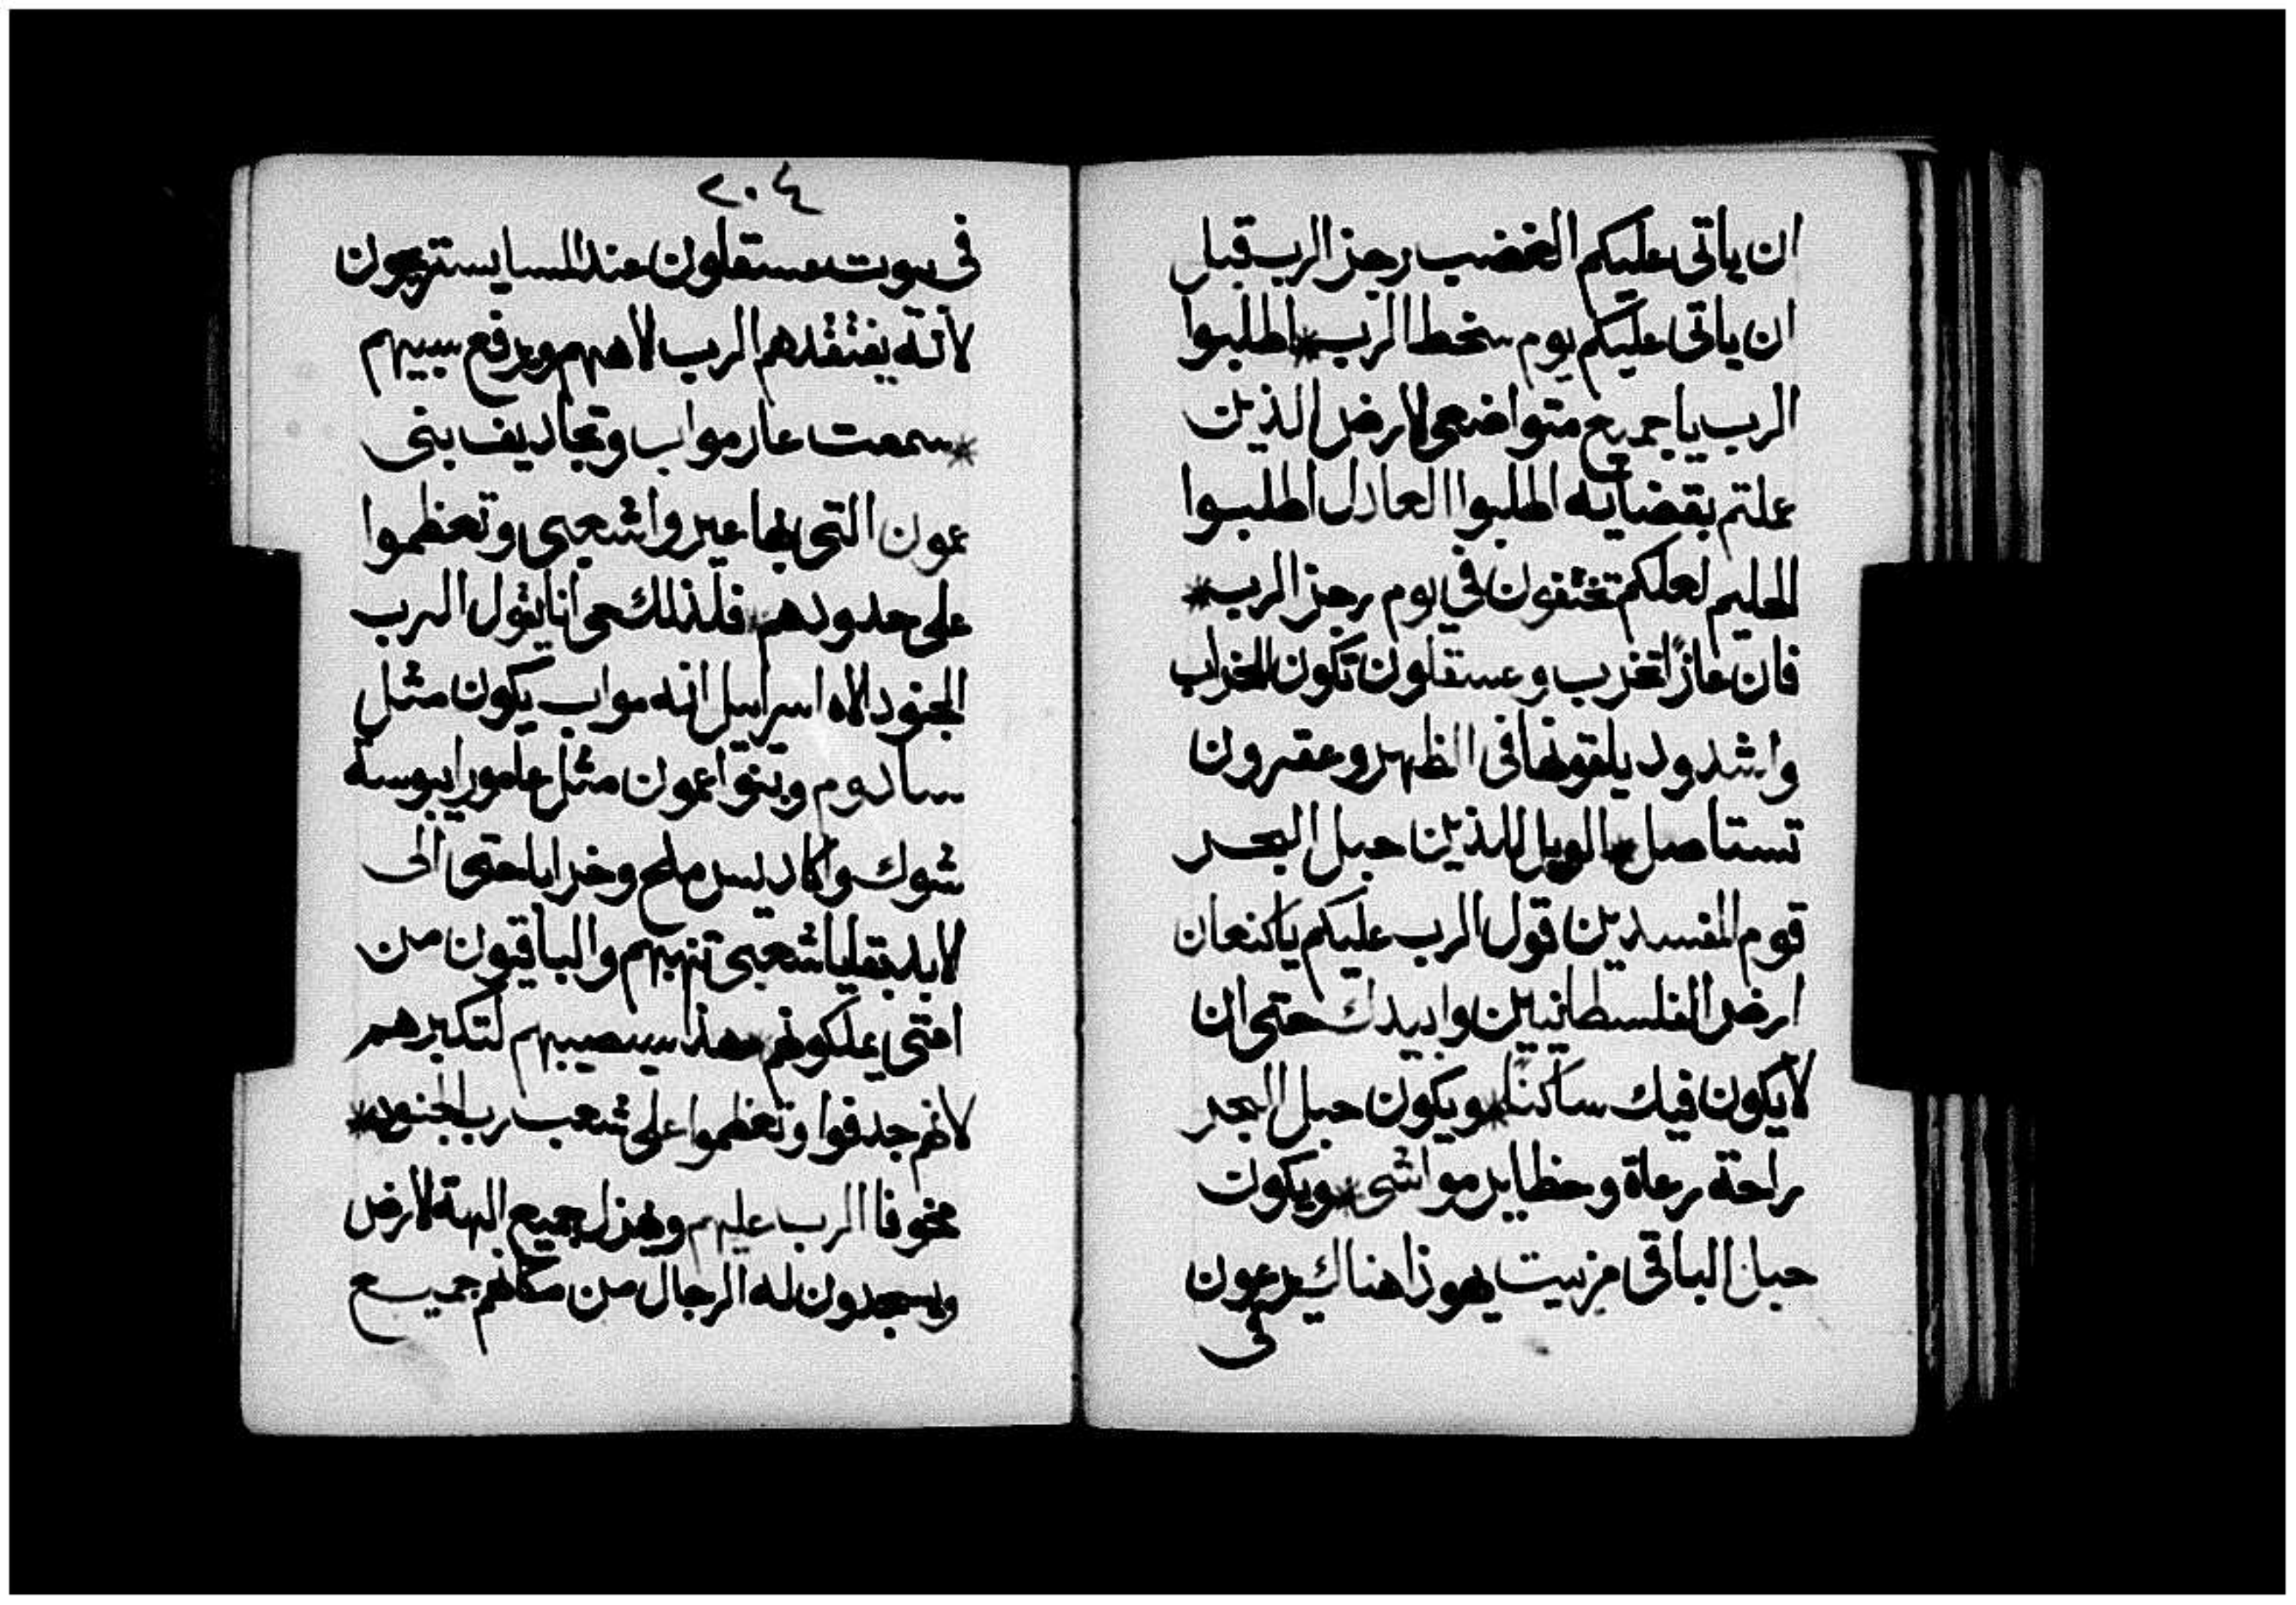 ان ياتى عليكم الغضب رجز الرب قبل
ان ياتى عليكم يوم سخط الرب * اطلبوا
الرب يا جميع متواضعى الارض الذين
عملتم بقضايه اطلبوا العادل اطلبوا
الحليم لعلكم تختفون في يوم رجز الرب *
فان غازًا تخرب وعسقلون تكون للخراب
واشدود يلقونها فى الظهر وعقرون
تستاصل * الويل للذين حبل البحر
قوم المفسدين قول الرب عليكم يا كنعان
ارض الفلسطانيين وابيدك حتى ان
لا يكون فيك ساكنًا * ويكون حبل البحر
راحة رعاة وحظاير مواشى * ويكون
حبل الباقى من بيت يهوذا هناك يرعون
في
٢٠٤
في بيوت عسقلون عند المسا يستريحون
لانه يفتقدهم الرب الاههم ويرفع سبيهم
* سمعت عار مواب وتجاديف بنى
عمون التى بها عيروا شعبى وتعظموا
على حدودهم * فلذلك حى انا يقول الرب
الجنود الاه اسراييل انه مواب يكون مثل
سادوم وبنوا عمون مثل عامورا يبوسة
شوك واكاديس ملح وخرابا حتى الى
الابد بقليا شعبى تنهبهم والباقيون من
امتى يملكونهم * هذا سيصيبهم لتكبرهم
لانهم جدفوا وتعظموا على شعب رب الجنود *
مخوفا الرب عليهم ويهزل جميع الهة الارض
ويسجدون له الرجال من مكانهم جميع